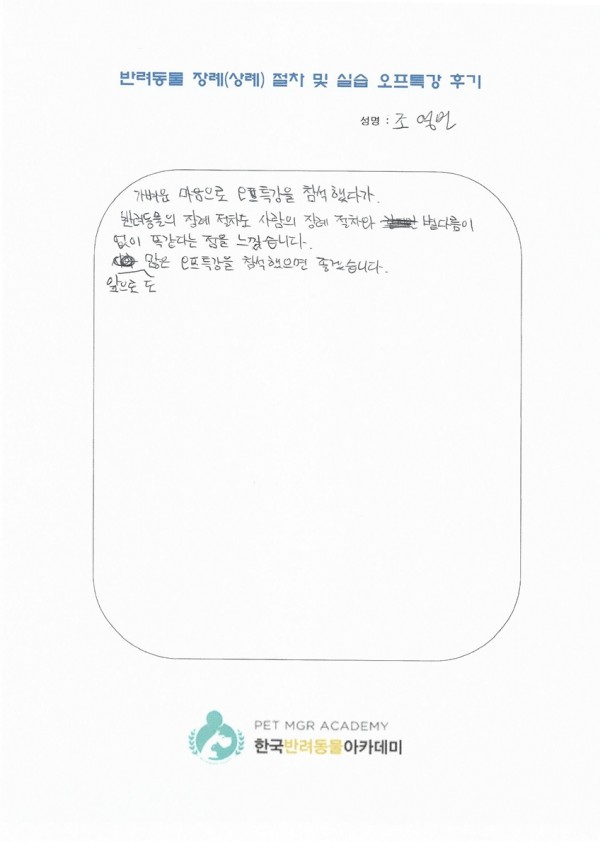 반려동물 장례(상례) 절차 및 실습 오프특강 후기
성명 : 조영민
가벼운 마음으로 오프특강을 참석했다가.
반려동물의 장례 절차도 사람의 장례 절차와 별다름이
없이 똑같다는 점을 느꼈습니다.
많은 오프특강을 참석했으면 좋겠습니다.
앞으로 도
PET MGR ACADEMY
한국반려동물아카데미